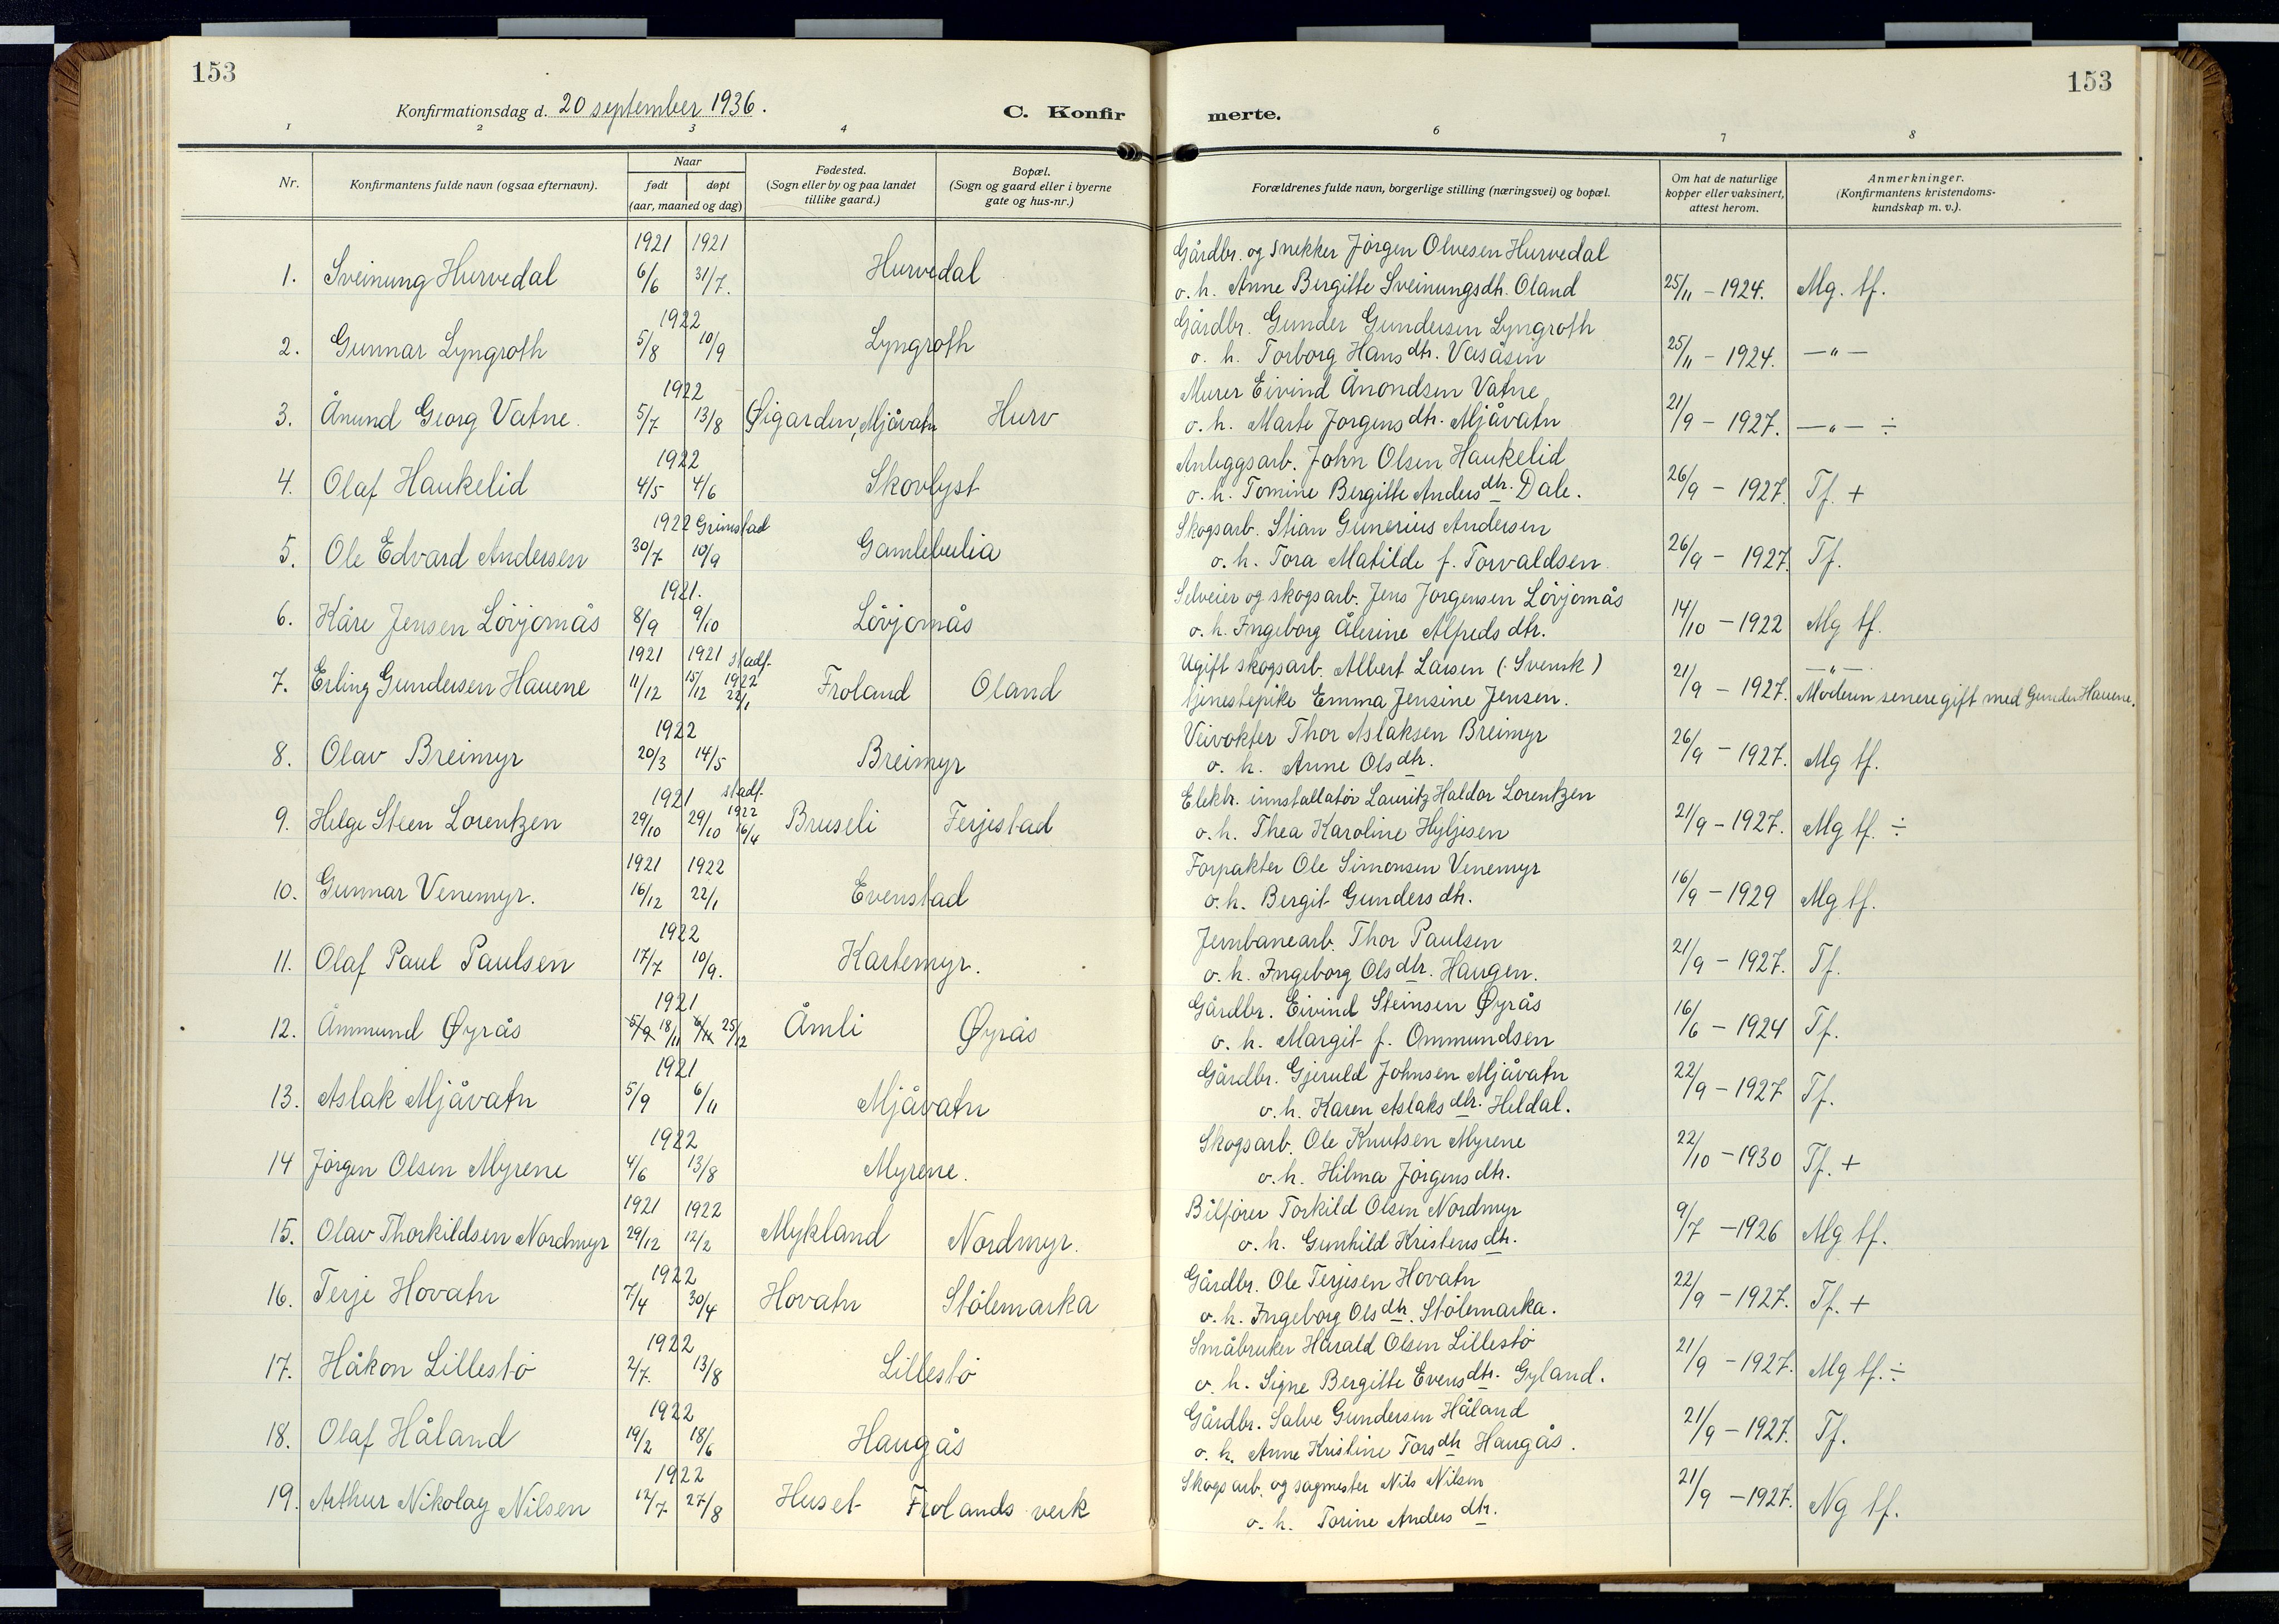 153
153
Konfirmationsdag d. 20 september 1936.
C. Konfir
merte.
1 2 3 4 6 7 8
Nr.
Konfirmantens fulde navn (ogsaa efternavn).
Naar
født døpt
(aar, maaned og dag)
Fødested.
(Sogn eller by og paa landet
tillike gaard.)
Bopæl.
(Sogn og gaard eller i byerne
gate og hus-nr.)
Forældrenes fulde navn, borgerlige stilling (næringsvei) og bopæl.
Om hat de naturlige
kopper eller vaksinert,
attest herom.
Anmerkninger.
(Konfirmantens kristendoms-
kundskap m. v.).
1921 1921 Gårdbr. og snekker Jörgen Olvesen Hurvedal
1. Sveinung Hurvedal 6/6 31/7. Hurvedal o. h. Anne Bergitte Sveinungsdtr. Oland 25/11 - 1924. Mg. tf.
1922 Gårdbr. Gunder Gundersen Lyngroth
2. Gunnar Lyngroth 5/8 10/9 Lyngroth o. h. Torborg Hansdtr. Vasåsen 25/11 - 1924. —"—
1922 Murer Eivind Ånondsen Vatne
3. Ånund Georg Vatne. 5/7 13/8 Øigarden, Mjåvatn Hurv o. h. Marte Jorgensdtr. Mjåvatn 21/9 - 1927. —"— ÷
1922 Anleggsarb. John Olsen Haukelid
4. Olaf Haukelid 4/5 4/6 Skovlyst o. h. Tomine Bergitte Andersdtr. Dale. 26/9 - 1927. Tf. +
1922 Grimstad Skogsarb. Stian Gunerius Andersen
5. Ole Edvard Andersen 30/7 10/9 Gamlebulia o. h. Tora Matilde f. Torvaldsen 26/9 - 1927. Tf.
1921. Selveier og skogsarb. Jens Jorgensen Lövjomås
6. Kåre Jensen Lövjomås 8/9 9/10 Lövjomås o. h. Ingeborg Ålerine Alfredsdtr. 14/10 - 1922 Mg tf.
1921 1921 stadf. Ugift skogsarb. Albert Larsen (: Svensk) —"—
7. Erling Gundersen Hauene 11/12 15/12 1922 22/1 Froland Oland tjenestepike Emma Jensine Jensen. 21/9 - 1927. Moderen senere gift med Gunder Hauene.
1922 Veivokter Thor Aslaksen Breimyr
8. Olav Breimyr 20/3 14/5 Breimyr o. h. Anne Olsdtr. 26/9 - 1927. Mg tf.
1921 stadf. Elektr. innstallatör Lauritz Haldor Lorentzen
9. Helge Steen Lorentzen 29/10 29/10 1922 16/4 Bruseli Ferjestad o. h. Thea Karoline Hyljesen 21/9 - 1927. Mg tf. ÷
1921 1922 Forpakter Ole Simonsen Venemyr
10. Gunnar Venemyr. 16/12 22/1 Evenstad o. h. Bergit Gundersdtr. 16/9 - 1929 Mg tf.
1922 Jernbanearb. Thor Paulsen
11. Olaf Paul Paulsen 17/7 10/9. Kartemyr. o. h. Ingeborg Olsdtr. Haugen. 21/9 - 1927. Tf.
1921 Gårdbr. Eivind Steinsen Øyrås
12. Åmmund Øyrås 5/9 18/11 6/11 25/12 Åmli Øyrås o. h. Margit f. Ommundsen 16/6 - 1924 Tf.
1921 Gårdbr. Gjeruld Johnsen Mjåvatn
13. Aslak Mjåvatn 5/9 6/11 Mjåvatn o. h. Karen Aslaksdtr. Heldal. 22/9 - 1927 Tf.
1922 Skogsarb. Ole Knutsen Myrene
14 Jörgen Olsen Myrene 4/6 13/8 Myrene. o. h. Hilma Jörgensdtr. 22/10 - 1930 Tf. +
1921 1922 Bilförer Torkild Olsen Nordmyr
15. Olav Thorkildsen Nordmyr 29/12 12/2 Mykland Nordmyr. o. h. Gunhild Kristensdtr. 9/7 - 1926 Mg tf.
1922 Gårdbr. Ole Terjesen Hovatn
16. Terje Hovatn 7/4 30/4 Hovatn Stölemarka o. h. Ingeborg Olsdtr. Stölemarka. 22/9 - 1927. Tf. +
1922 Småbruker Harald Olsen Lillestö
17. Håkon Lillestö 2/7. 13/8 Lillestö o. h. Signe Bergitte Evensdtr. Gyland. 21/9 - 1927. Mg tf. ÷
1922 Gårdbr. Salve Gundersen Håland
18. Olaf Håland 19/2 18/6 Haugås o. h. Anne Kristine Torsdtr Haugås. 21/9 - 1927. Tf.
1922 Skogsarb. og sagmester Nils Nilsen
19. Arthur Nikolay Nilsen 12/7. 27/8 Huset Frolands verk o. h. Torine Andersdtr. 21/9 - 1927. Ng tf.